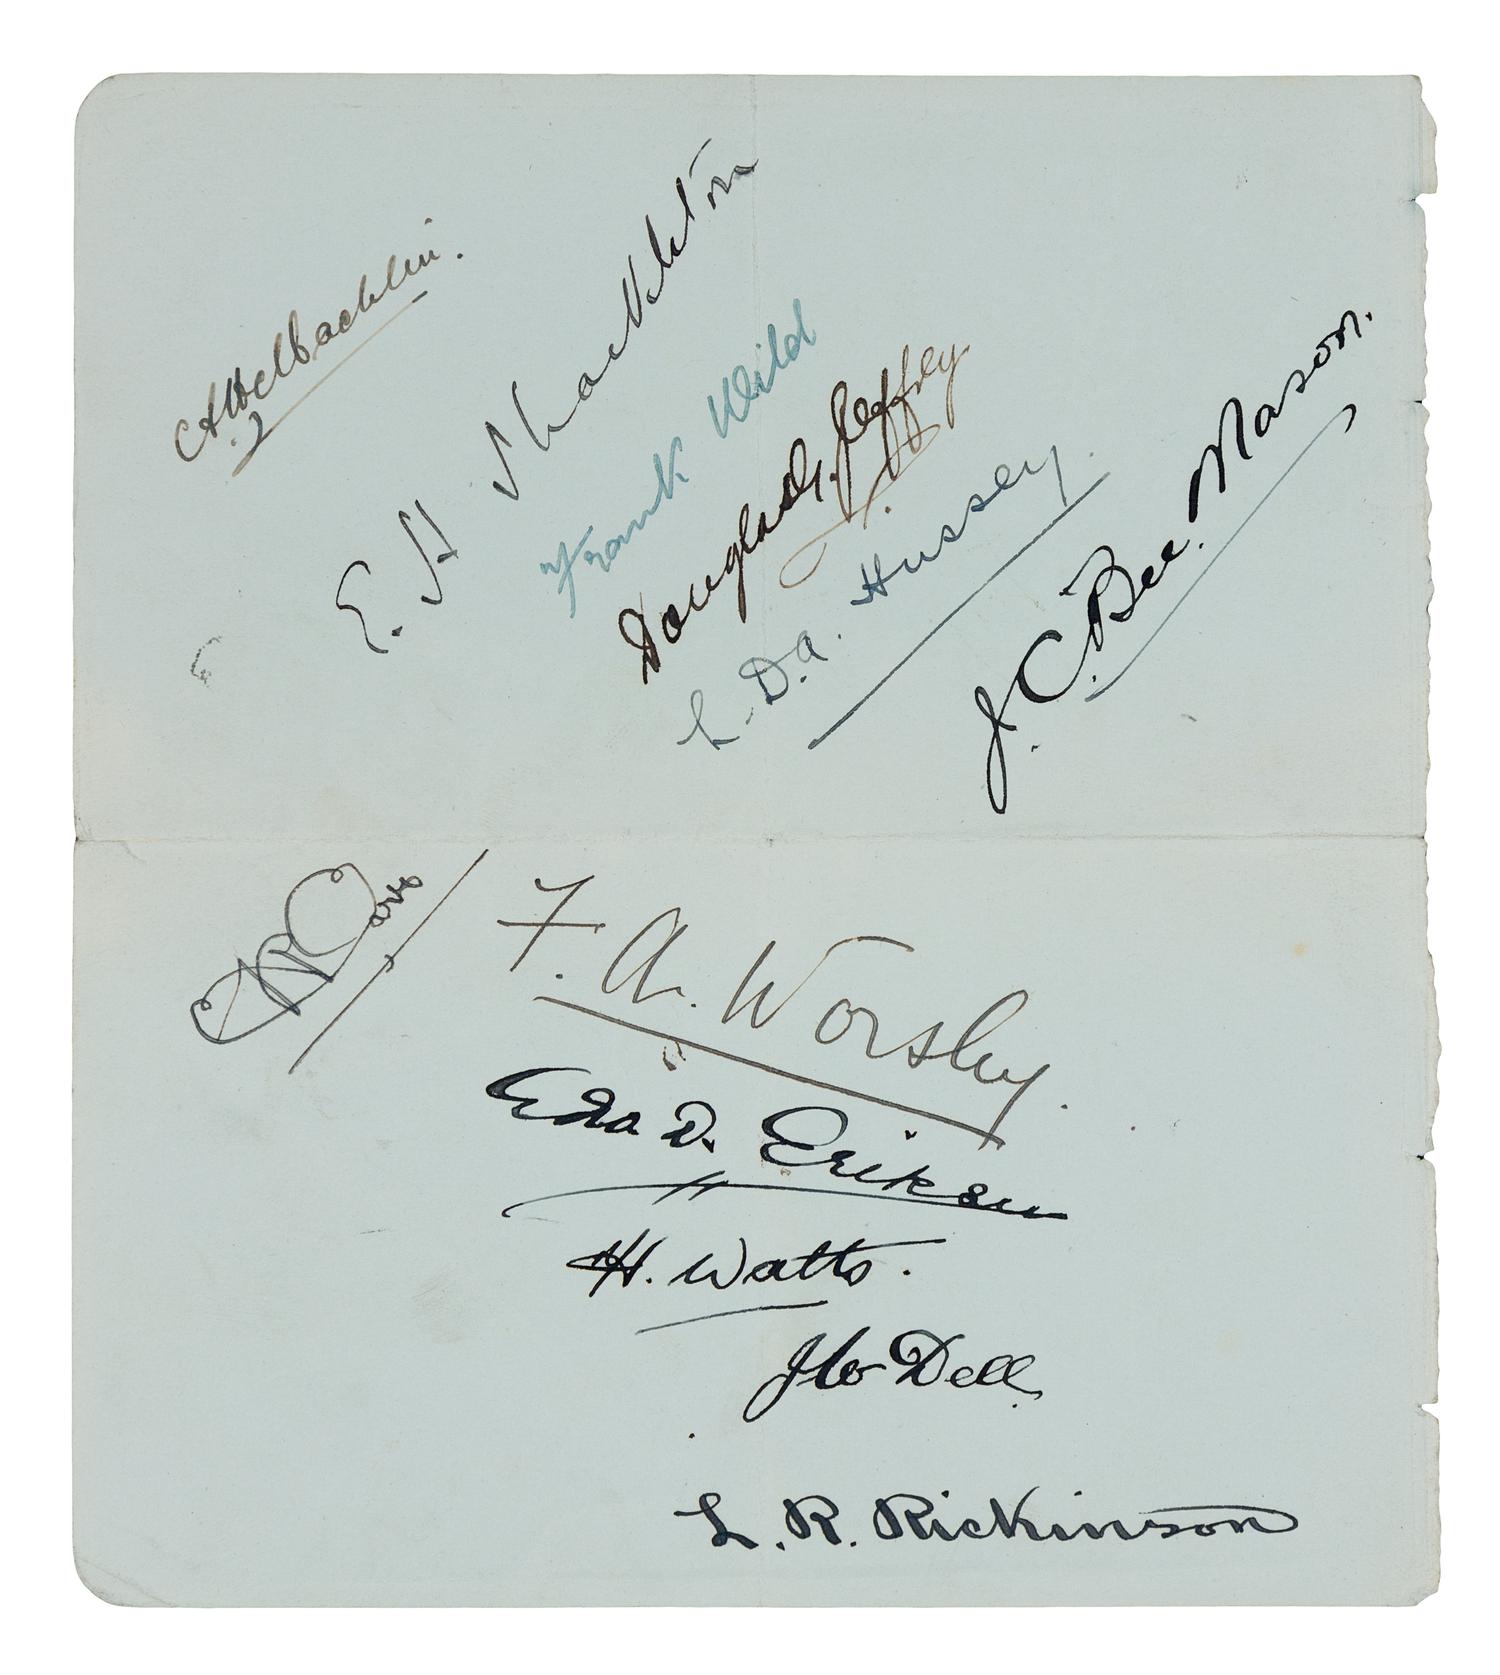 E. H Shackleton
Frank Wild
Douglas G. Jeffrey
L. D. A. Hussey.
J. C. Bee. Mason.
CRCarr
F. A. Worsley.
D. Eriksen
H. Watts.
JW Dell
L. R. Rickinson